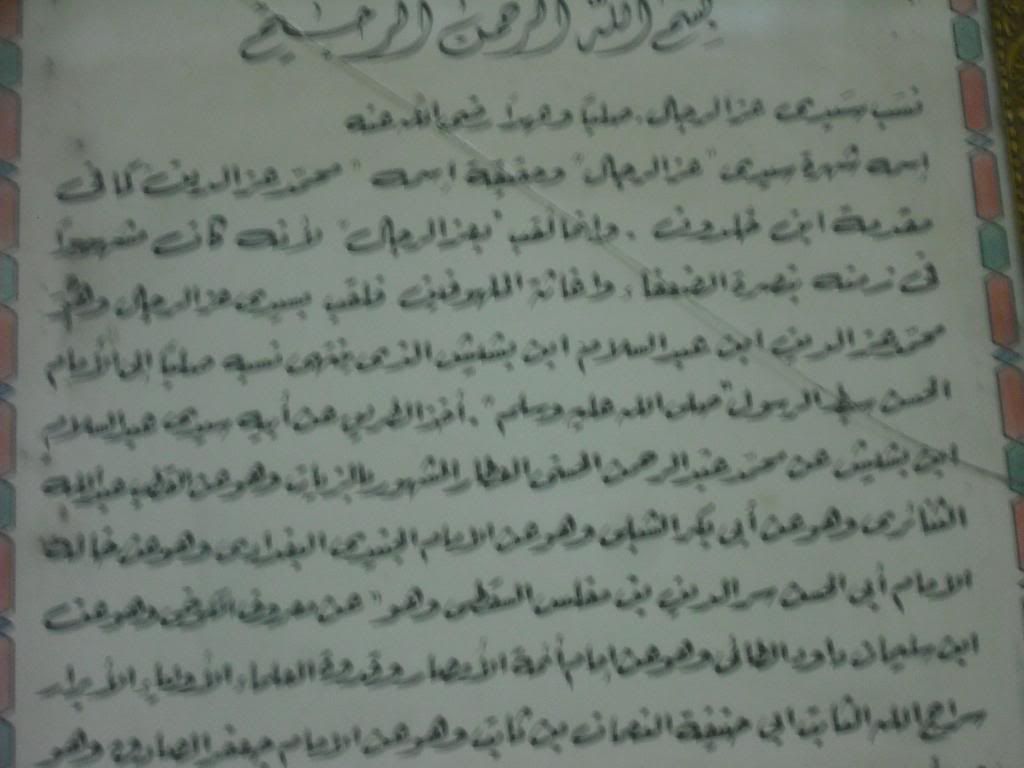 بسم الله الرحمن الرحيم
نسب سيدى عز الرجال صلبا وعهدا رضى الله عنه
إسمه شهرة سيدى "عز الرجال" وحقيقة إسمه "محمد عز الدين" كما فى
مقدمة ابن خلدون . وإنما لقب "بعز الرجال" لأنه كان مشهورا
فى زمنه بنصرة الضعفاء وإغاثة الملهوفين فلقب بسيدى عز الرجال وهو
محمد عز الدين ابن عبد السلام ابن بشيش الذى ينتهى نسبه صلبا إلى الأمام
الحسن سبط الرسول "صلى الله عليه وسلم" . أخذ الطريق عن أبيه سيدى عبد السلام
ابن بشيش عن محمد عبد الرحمن الحسنى العطار الشهور بالزيات وهو عن القطب عبد الله
وهو عن أبى بكر الشبلى وهو عن الامام الجنيدى البغدادى وهو عن خاله
الامام أبى الحسن سر الدين بن مغلس السقطى وهو عن معروف الكرخى وهو عن
ابن سليمان داود الطائى وهو عن إمام أئمة الأمصار وقدوة العلماء الأولياء الأبرار
سراج الله الثابت ابى حنيفة النعمان بن ثابت وهو عن الامام جعفر الصادق وهو